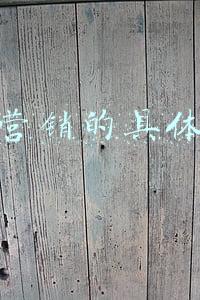 营销的具体